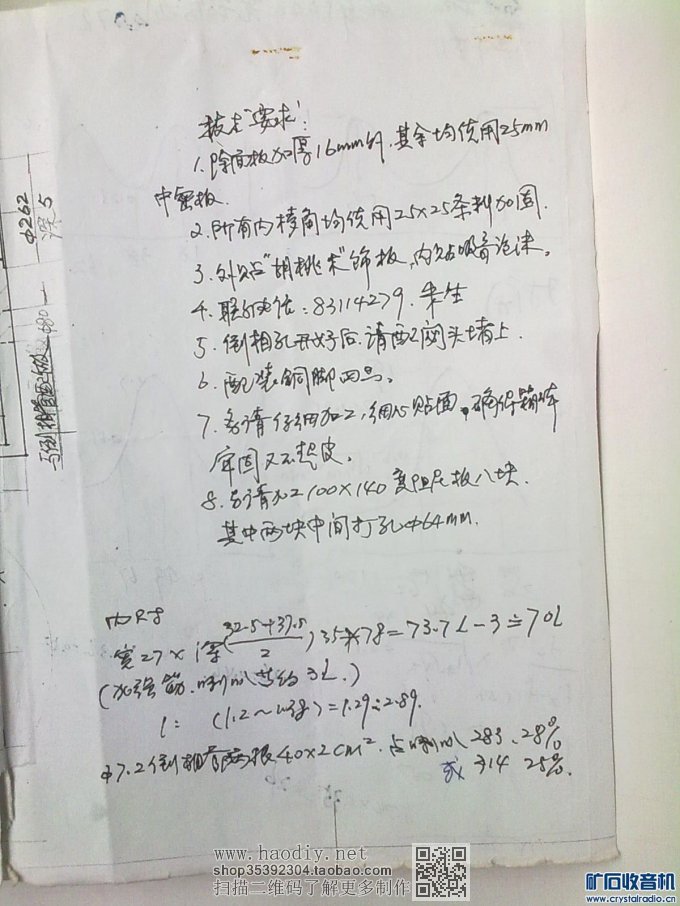 技术要求:
1. 除面板加厚16mm外,其余均使用25mm
中密板.
2. 所有内棱角均使用25×25条料加固.
3. 外贴"胡桃木"饰板,内贴吸音泡沫。
4. 联系电话:83114279. 朱生
5. 倒相孔开好后.请配网头堵上.
6. 配装铜脚四只。
7. 务请仔细加工,细心贴面,确保箱体
牢固又不起皮。
8. 另请加工100×140高阻尼板八块.
其中两块中间打孔φ64mm.
φ262
深5
内尺寸
宽27×深(32.5+37.5/2)35×78=73.7L-3≒70L
(加强筋.喇叭等约3L.)
1: (1.2~
)=1.29:2.89.
φ7.2倒相管两根40×2cm². 占喇叭283、28%
或314 25%.
www.haodiy.net
shop35392304.taobao.com
扫描二维码了解更多制作
矿石收音机
www.crystalradio.cn